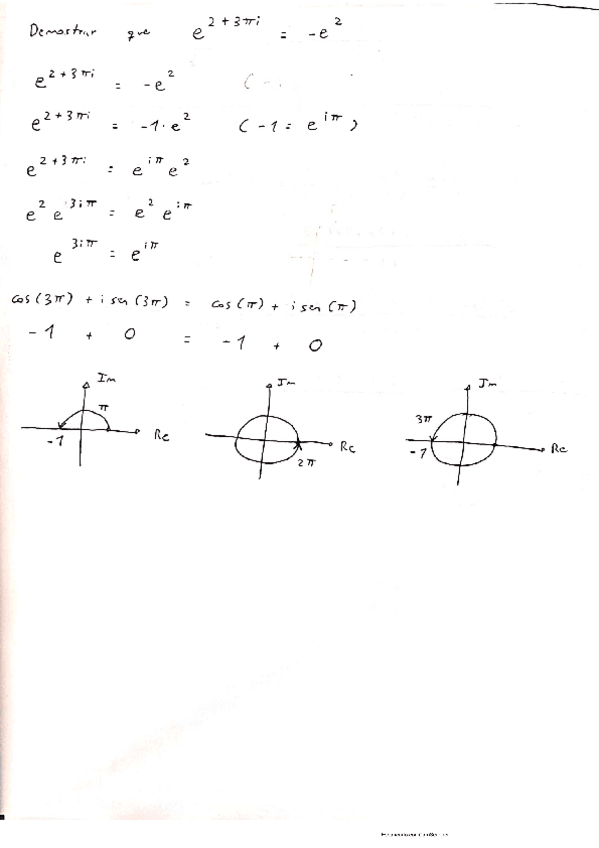 Demostrar que e^{2+3πi} = -e^2
e^{2+3πi} = -e^2 (-
e^{2+3πi} = -1·e^2 (-1 = e^{iπ})
e^{2+3πi} = e^{iπ} e^2
e^2 e^{3iπ} = e^2 e^{iπ}
e^{3iπ} = e^{iπ}
cos(3π) + i sen(3π) = cos(π) + i sen(π)
-1 + 0 = -1 + 0
Im π Re -1
Im Re 2π
Im 3π Re -1